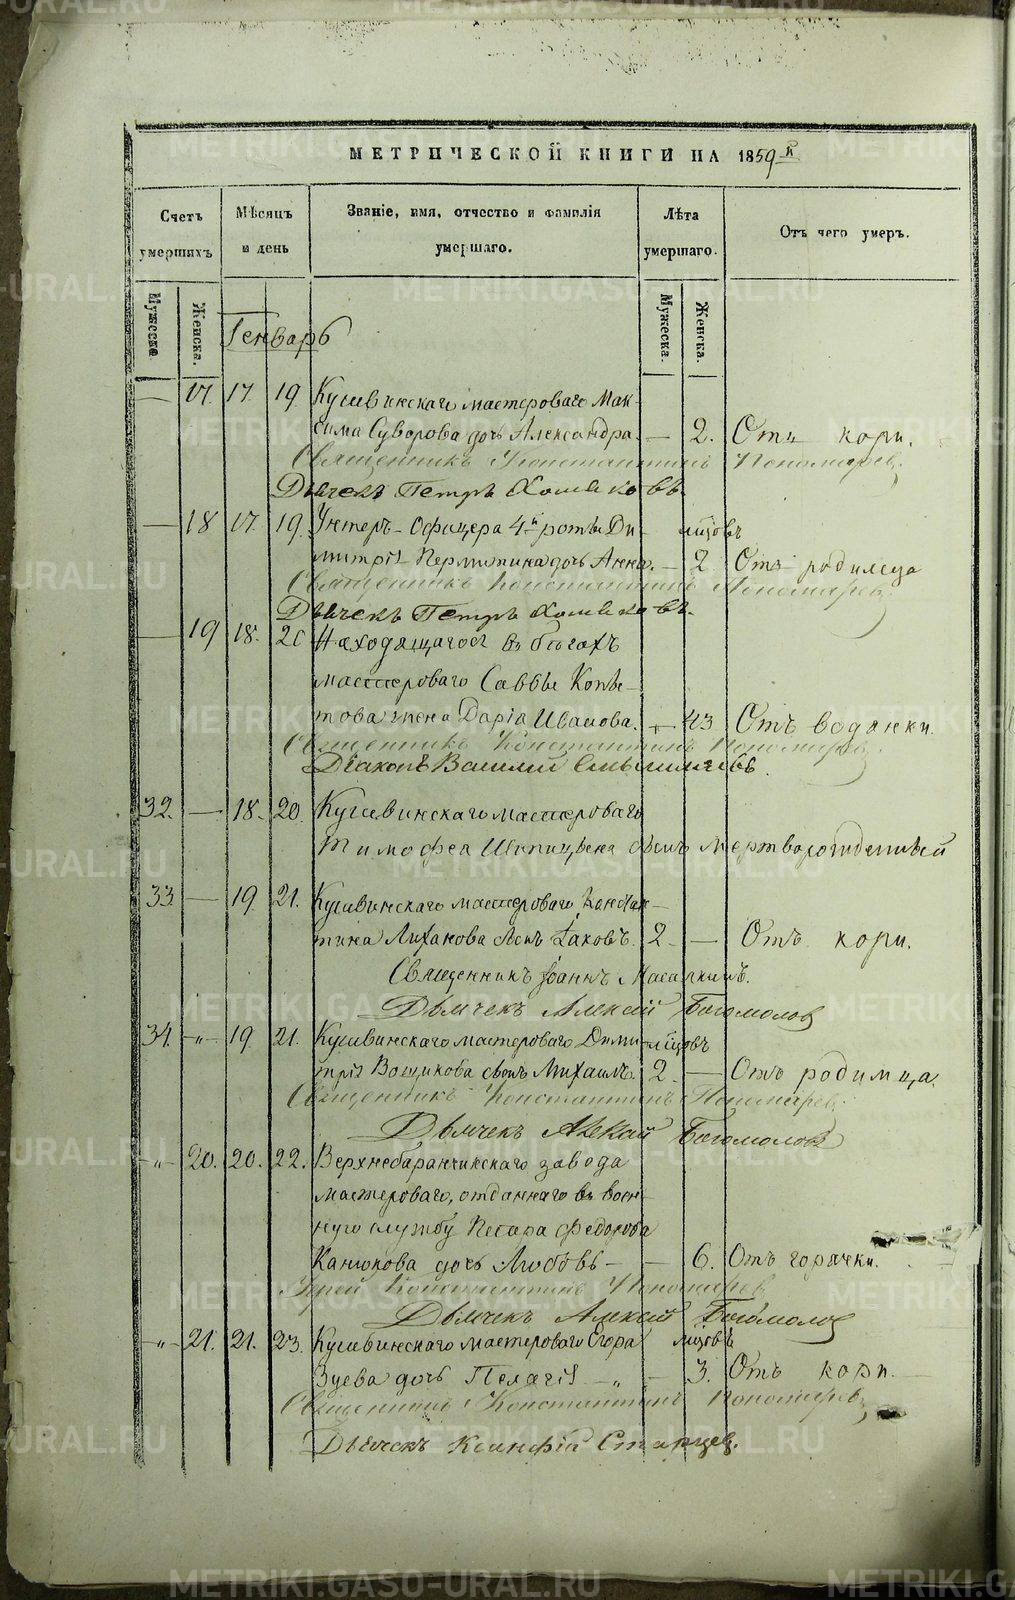 МЕТРИЧЕСКОЙ КНИГИ НА 1859 й
Счетъ умершихъ Мѣсяцъ и день Званіе, имя, отчество и фамилія умершаго. Лѣта умершаго. Отъ чего умеръ.
Мужеска. Женска. Мужеска. Женска.
Генварь
— 17. 17. 19. Кушвинскаго мастероваго Мак-
сима Суворова дочь Александра. — 2. Отъ кори.
Священникъ Константинъ Пономарев.
Дьячекъ Петръ Хомяковъ.
— 18 17. 19. Унтеръ-Офицера 4й роты Ди- мѣсцовъ
митрія Пермитина дочь Анна. — 2 Отъ родимца
Священникъ Константинъ Пономарев.
Дьячекъ Петръ Хомяковъ.
— 19 18. 20 Находящагося въ бѣгахъ
мастероваго Саввы Копы-
това жена Дарія Иванова. — 43 Отъ водянки.
Священникъ Константинъ Пономарев.
Діаконъ Василий
32. — 18. 20. Кушвинскаго мастероваго
Тимофея Шипицына сынъ мертворожденный
33. — 19. 21. Кушвинскаго мастероваго Констан-
тина Лиханова сынъ Іаковъ. 2. — Отъ кори.
Священникъ Іоаннъ
Дьячекъ Алексій Богомолов
34. -„- 19 21. Кушвинскаго мастероваго Дими- мѣсцовъ
трія Вощикова сынъ Михаилъ. 2. — Отъ родимца.
Священникъ Константинъ Пономарев.
Дьячекъ Алексій Богомолов
-„- 20. 20. 22. Верхнебаранчинскаго завода
мастероваго, отданнаго въ воен-
ную службу Федорова
Канюкова дочь Любовь — — 6. Отъ горячки.
Іерей Константинъ Пономарев
Дьячекъ Алексій Богомолов
-„- 21. 21. 23. Кушвинскаго мастероваго Егора мѣсцовъ
Зуева дочь Пелагія -„- — 3. Отъ кори.
Священникъ Константинъ Пономарев
Дьячекъ Ксинфій Старцев.
METRIKI.GASO-URAL.RU